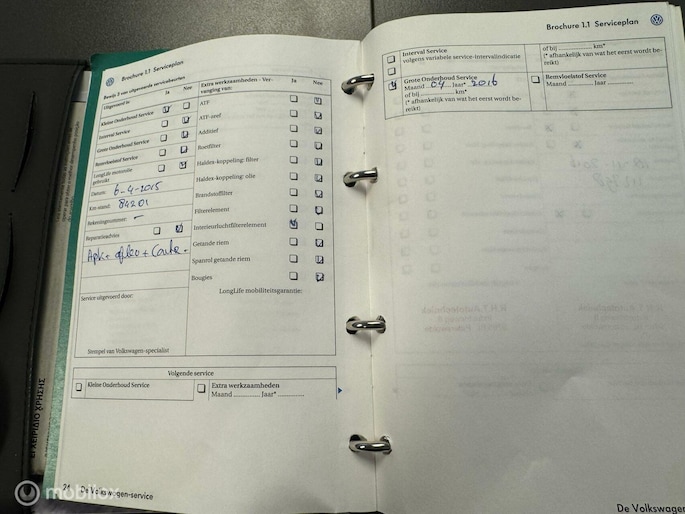 Brochure 1.1 Serviceplan
Bewijs 3 van uitgevoerde servicebeurten
Uitgevoerd in
Ja Nee
Kleine Onderhoud Service
Interval Service
Grote Onderhoud Service
Remvloeistof Service
LongLife motorolie
gebruikt
Datum: 6-4-2015
Km-stand: 84201
Rekeningnummer: -
Reparatieadvies
Apk +
Service uitgevoerd door:
Stempel van Volkswagen-specialist
Extra werkzaamheden - Ver-
vanging van:
Ja Nee
ATF
ATF-zeef
Additief
Roetfilter
Haldex-koppeling: filter
Haldex-koppeling: olie
Brandstoffilter
Filterelement
Interieurluchtfilterelement
Getande riem
Spanrol getande riem
Bougies
LongLife mobiliteitsgarantie:
Volgende service
Kleine Onderhoud Service
Extra werkzaamheden
Maand ............ Jaar* ............
De Volkswagen-service
Brochure 1.1 Serviceplan
Interval Service
volgens variabele service-intervalindicatie
Grote Onderhoud Service
Maand 04 Jaar* 2016
of bij ............ km*
(* afhankelijk van wat het eerst wordt be-
reikt)
of bij ............ km*
(* afhankelijk van wat het eerst wordt be-
reikt)
Remvloeistof Service
Maand ............ Jaar* ............
De Volkswagen
ΕΓΧΕΙΡΙΔΙΟ ΧΡΗΣΗΣ
mobilox